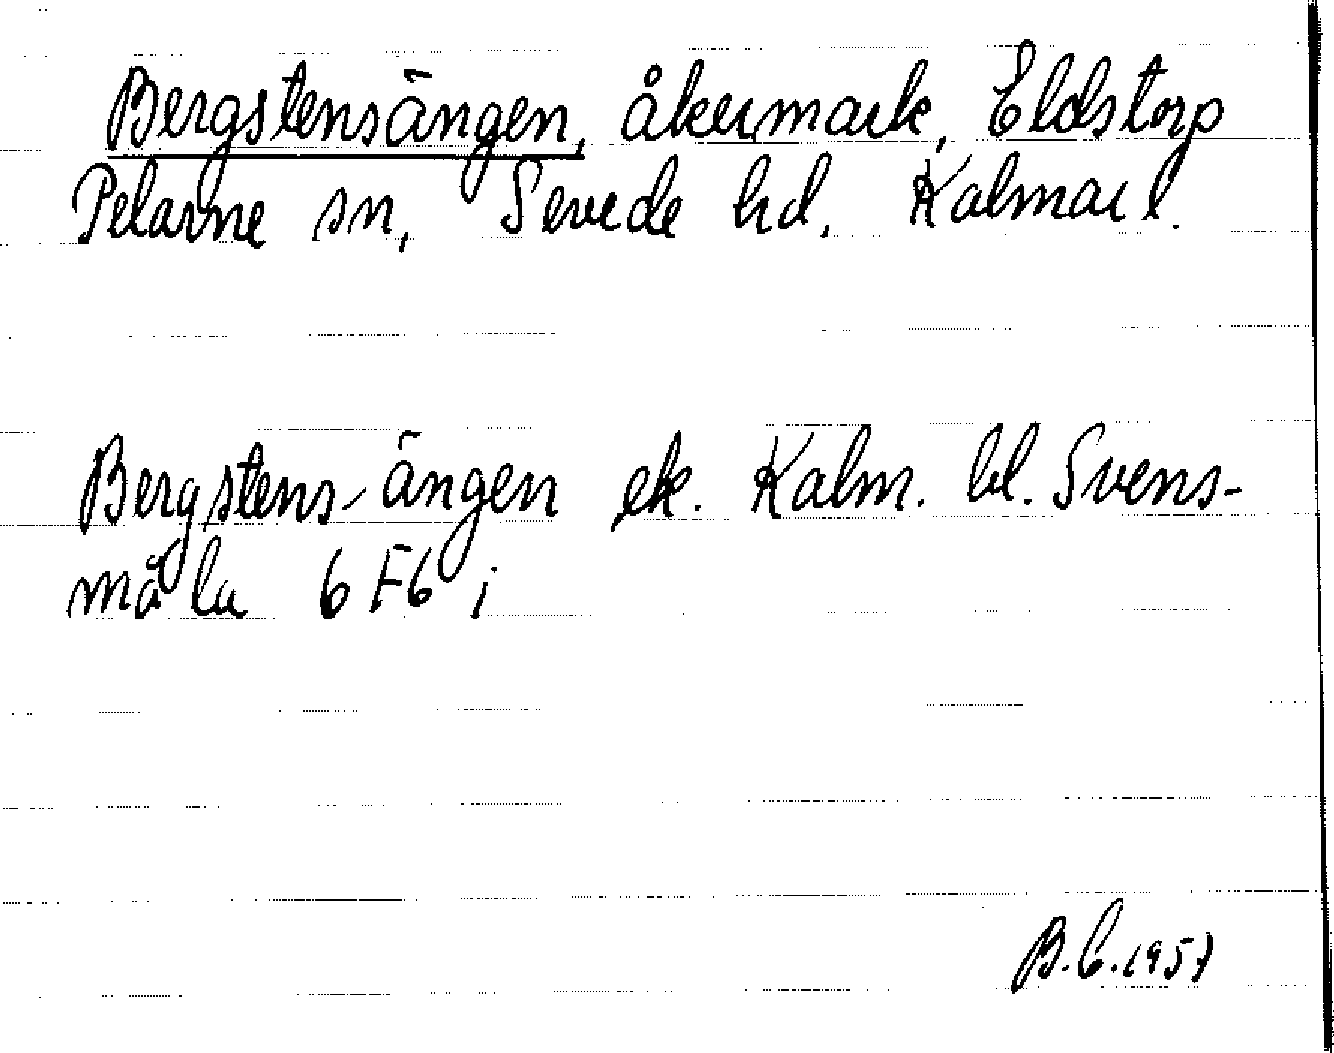 Bergstensängen, åkermark, Eldstorp
Pelarne sn, Sevede hd, Kalmar l.
Bergstens-ängen ek. Kalm. bl. Svens-
måla 6 F6 i
B.C. 1957